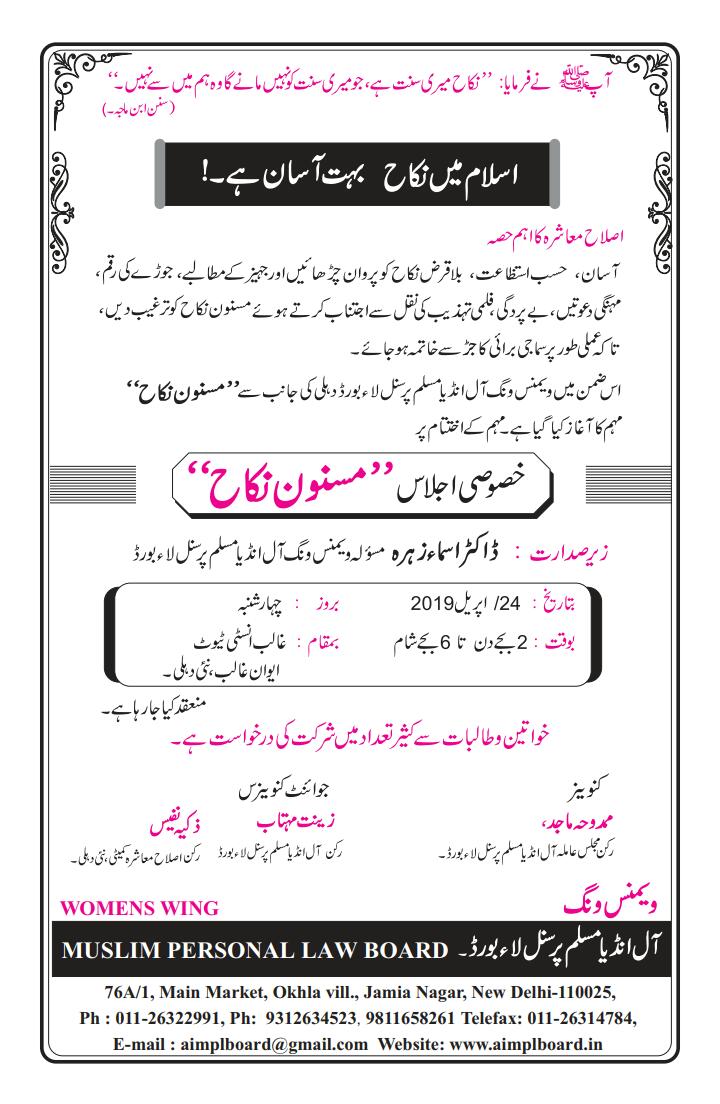 آپ ﷺ نے فرمایا: ’’نکاح میری سنت ہے، جو میری سنت کو نہیں مانے گا وہ ہم میں سے نہیں۔‘‘
(سنن ابن ماجہ۔)
اسلام میں نکاح بہت آسان ہے۔!
اصلاح معاشرہ کا اہم حصہ
آسان، حسب استطاعت، بلا قرض نکاح کو پروان چڑھائیں اور جہیز کے مطالبے، جوڑے کی رقم،
مہنگی دعوتیں، بے پردگی، فلمی تہذیب کی نقل سے اجتناب کرتے ہوئے مسنون نکاح کو ترغیب دیں،
تاکہ عملی طور پر سماجی برائی کا جڑ سے خاتمہ ہو جائے۔
اس ضمن میں ویمنس ونگ آل انڈیا مسلم پرسنل لاء بورڈ دہلی کی جانب سے ’’مسنون نکاح‘‘
مہم کا آغاز کیا گیا ہے۔ مہم کے اختتام پر
خصوصی اجلاس ’’مسنون نکاح‘‘
زیر صدارت : ڈاکٹر اسماء زہرہ مسؤلہ ویمنس ونگ آل انڈیا مسلم پرسنل لاء بورڈ
بتاریخ : 24/ اپریل 2019 بروز : چہارشنبہ
بوقت : 2 بجے دن تا 6 بجے شام بمقام : غالب انسٹی ٹیوٹ
ایوان غالب، نئی دہلی۔
منعقد کیا جا رہا ہے۔
خواتین و طالبات سے کثیر تعداد میں شرکت کی درخواست ہے۔
کنوینر جوائنٹ کنوینرس
ممدوحہ ماجد، زینت مہتاب ذکیہ نفیس
رکن مجلس عاملہ آل انڈیا مسلم پرسنل لاء بورڈ۔ رکن آل انڈیا مسلم پرسنل لاء بورڈ رکن اصلاح معاشرہ کمیٹی، نئی دہلی۔
ویمنس ونگ WOMENS WING
آل انڈیا مسلم پرسنل لاء بورڈ۔ MUSLIM PERSONAL LAW BOARD
76A/1, Main Market, Okhla vill., Jamia Nagar, New Delhi-110025,
Ph : 011-26322991, Ph: 9312634523, 9811658261 Telefax: 011-26314784,
E-mail : aimplboard@gmail.com Website: www.aimplboard.in